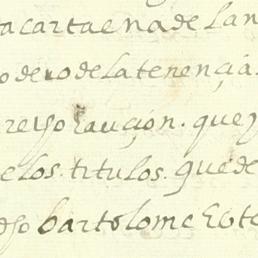 a carta en a de la n
o de ro de la tenençia
reyso cauçion. que y
e los. titulos. que de
dso bartolome